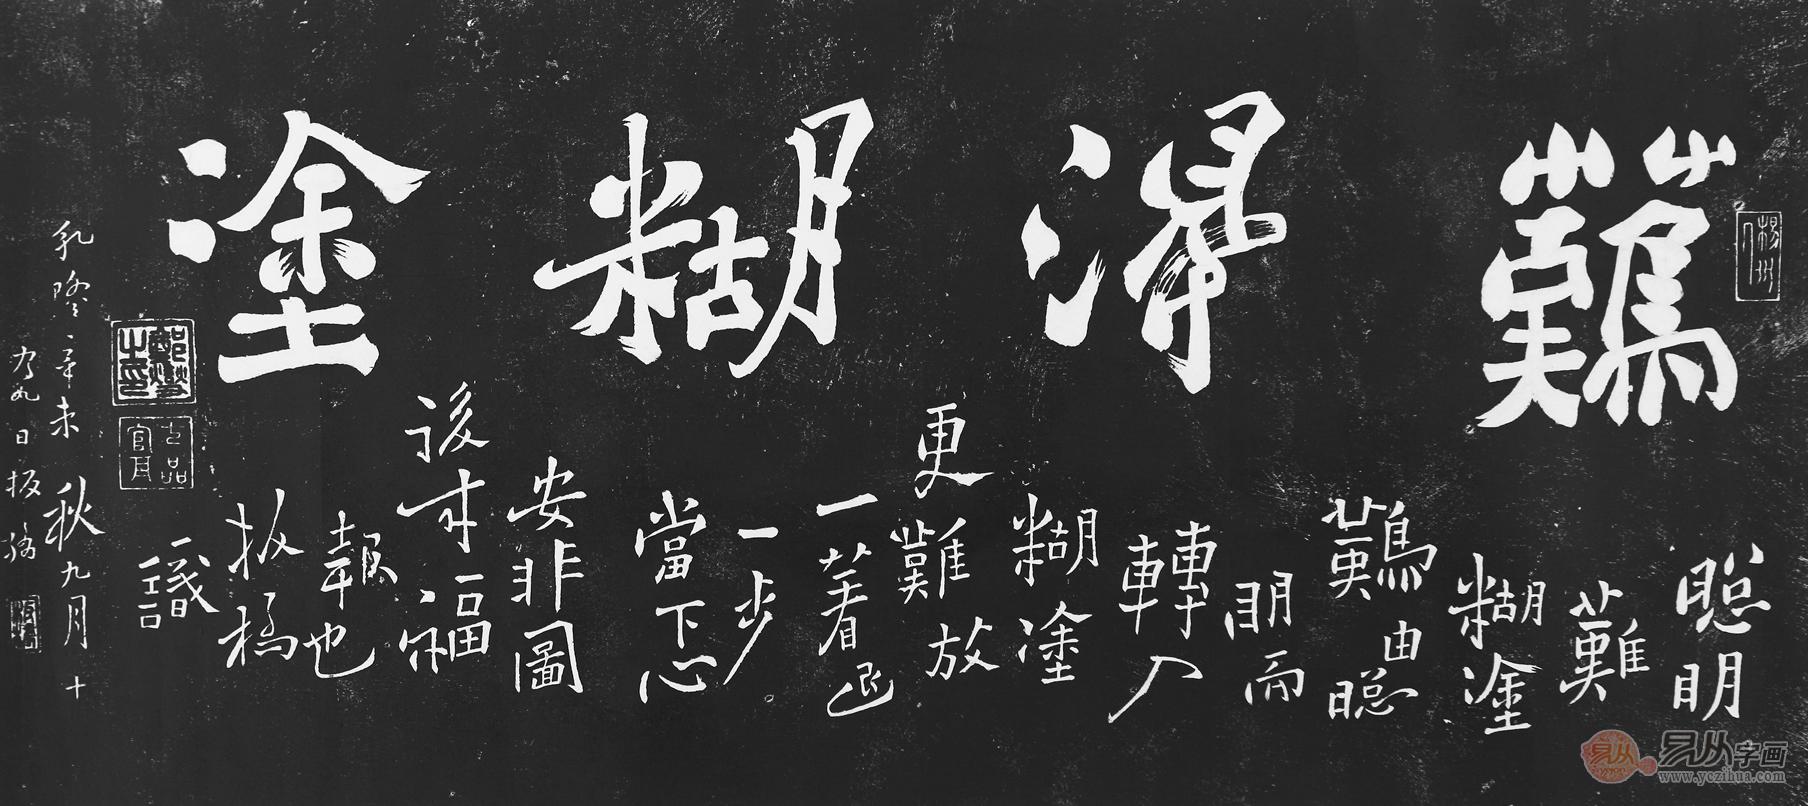 難得糊塗
聰明
難
糊塗
難由聰
明而
轉入
糊塗
更難放
一著退
一步
當下心
安非圖
後來福
報也
板橋
識
鄭燮之印
七品官耳
乾隆辛未秋九月十
有九日板橋
易从字画
www.yczihua.com